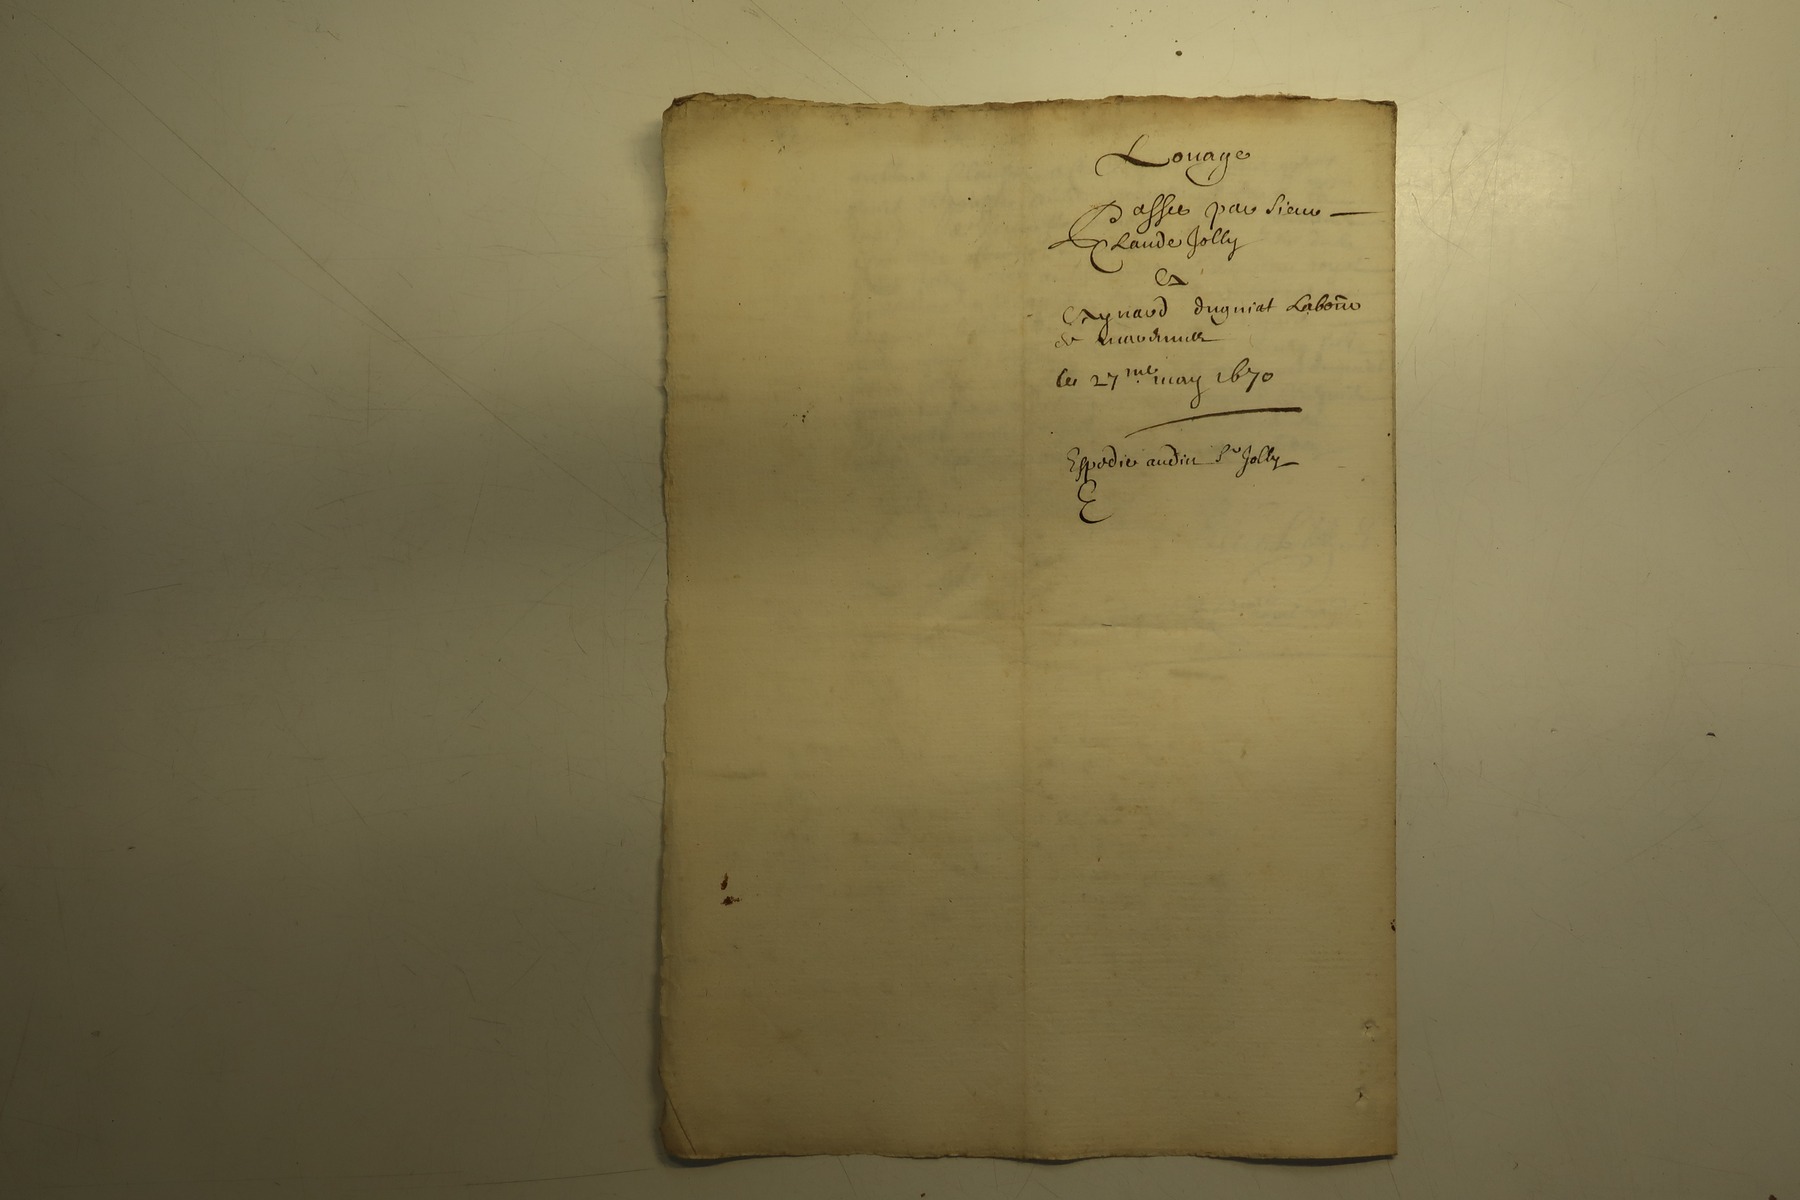 Louage
Passee par Sieur
Claude Jolly
A
Aynard dugniat Labour
de
le 27me may 1670
Espedie audit Sr Jolly